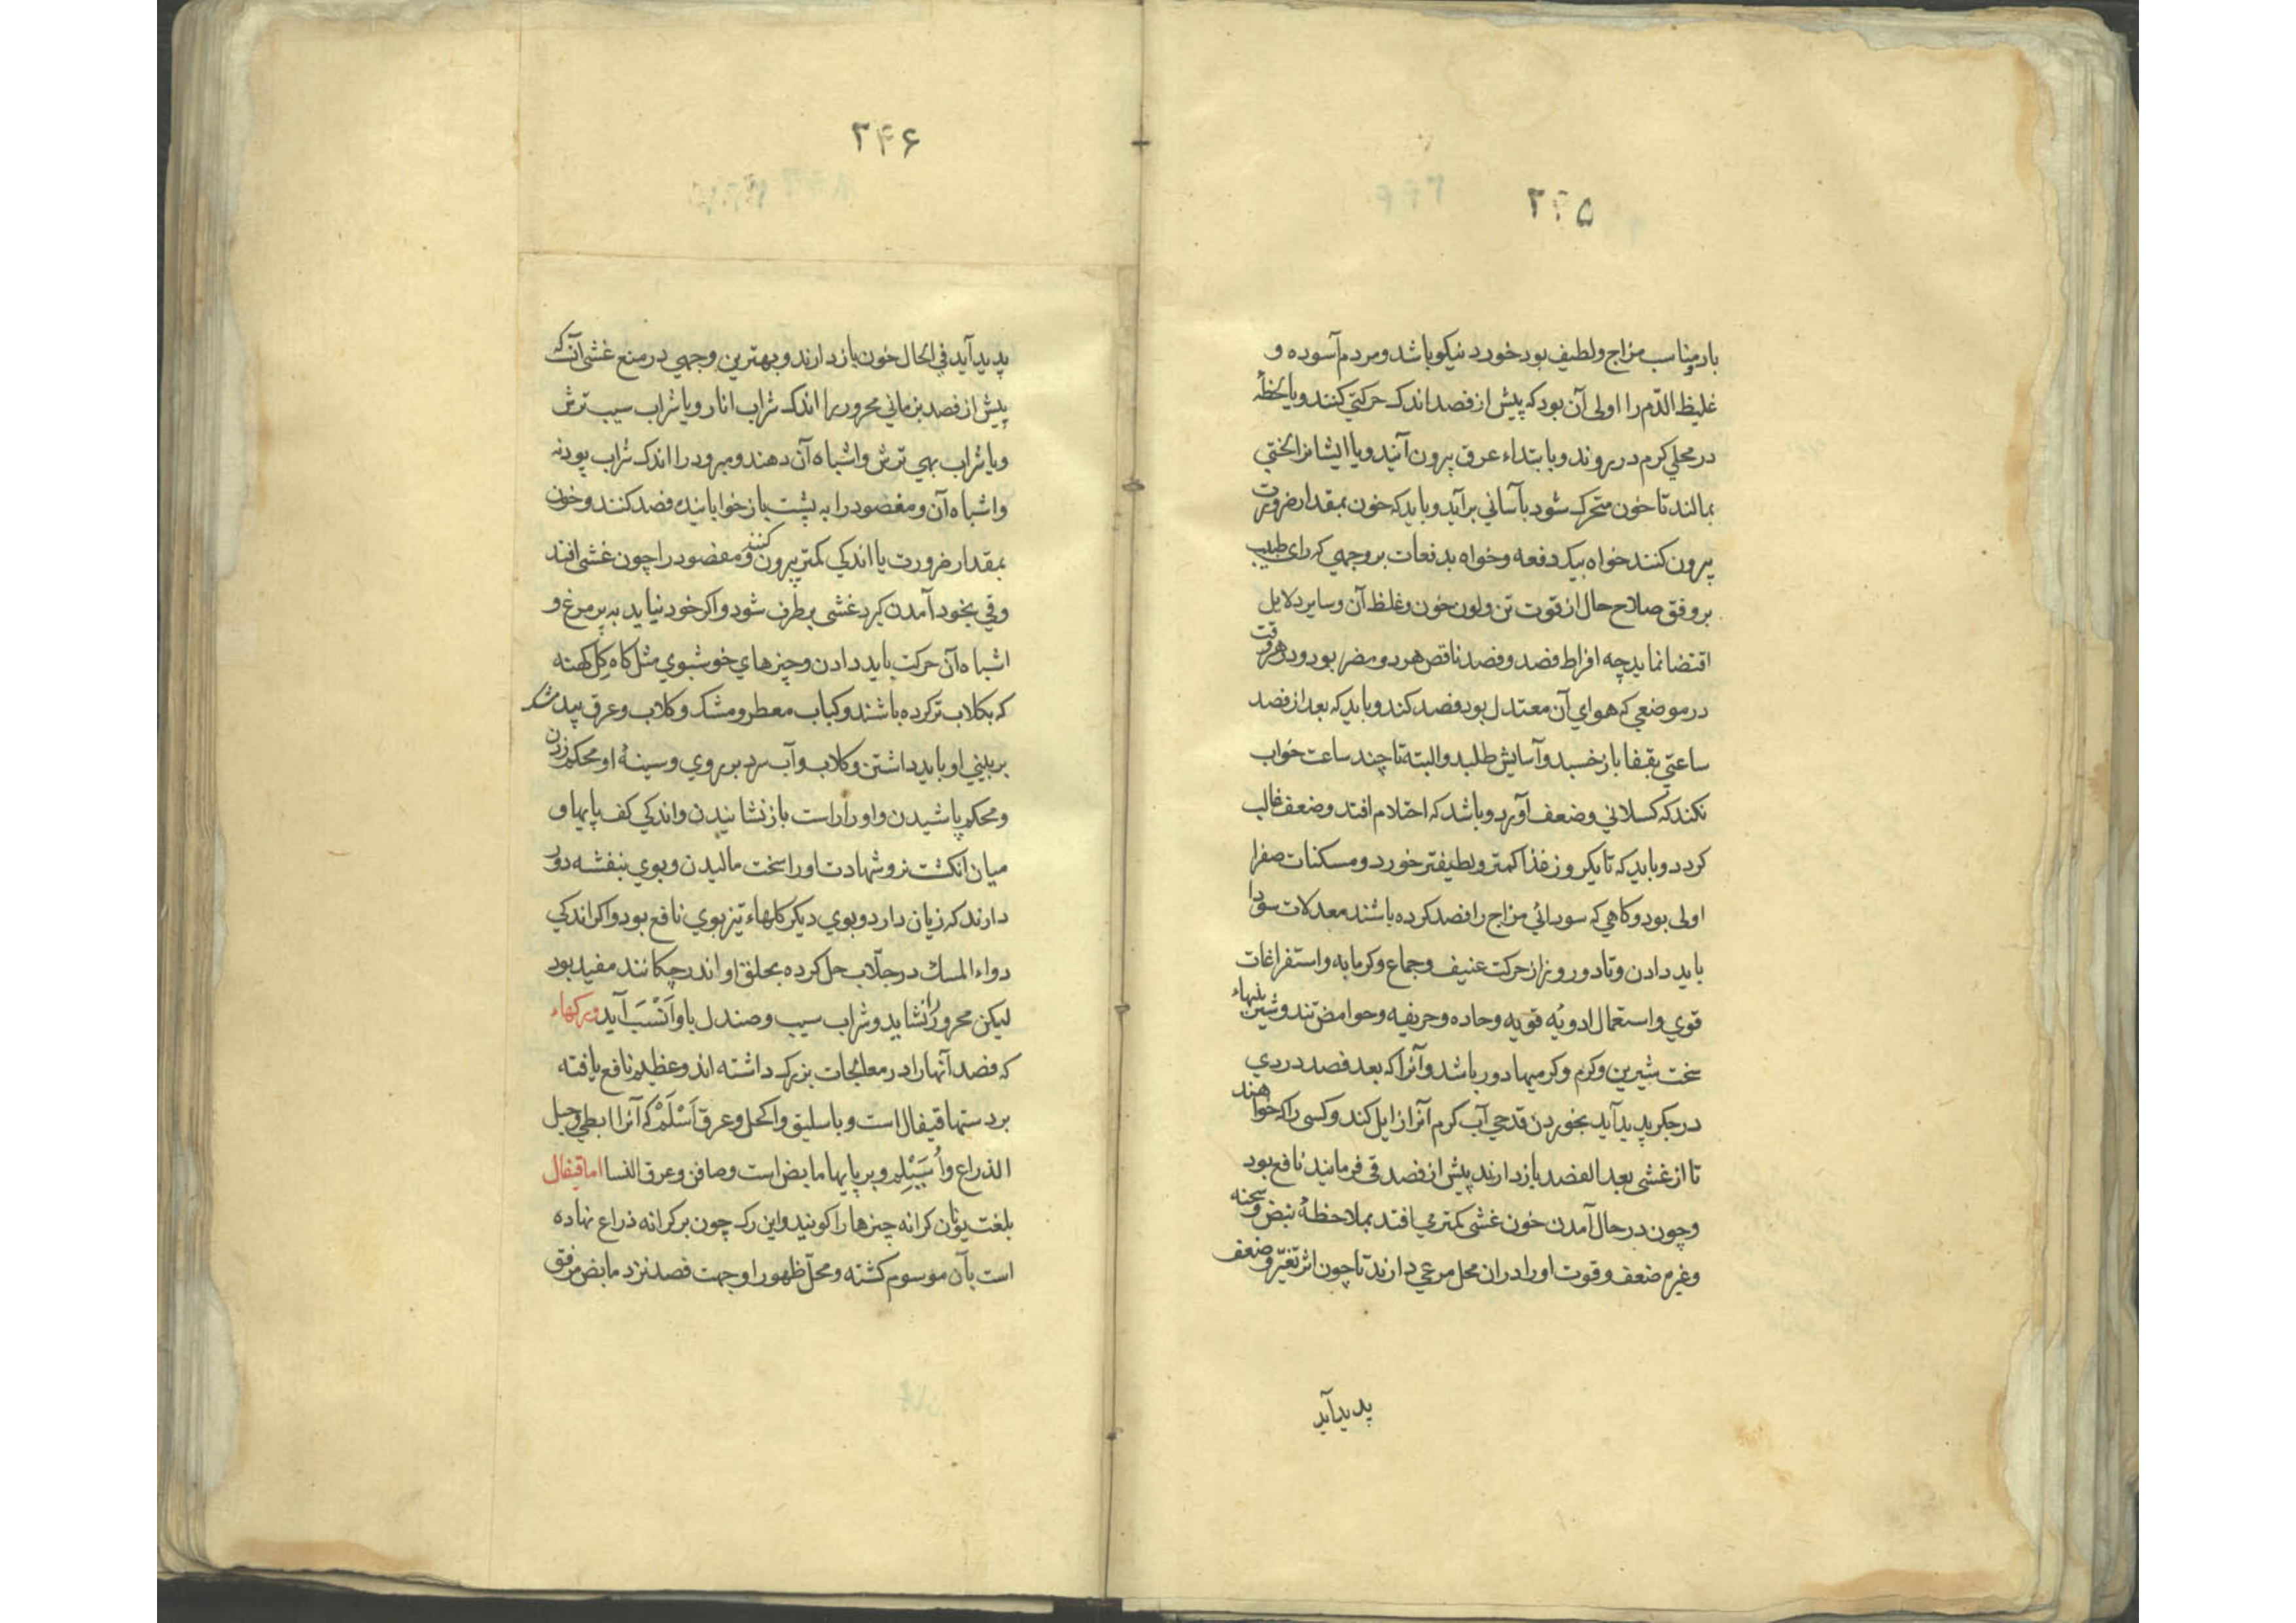 ۲۴۵
بار مناسب مزاج ولطیف بود خورد نیکو باشد ومردم آسوده و
غلیظ الدّم را اولی آن بود که پیش از فصد اندک حرکتی کنند ویا لحظهٔ
در محلی کرم در روند وبا بتداء عرق بیرون آیند ویا ایشانرا لختی
بمالند تا خون متحرک شود بآسانی برآید وباید که خون بمقدار ضرورت
بیرون کنند خواه بیک دفعه وخواه بدفعات بر وجهی که رای طبیب
بر وفق صلاح حال از قوت تن ولون خون وغلظ آن وسایر دلایل
اقتضا نماید چه افراط فصد وفصد ناقص هر دو مضر بود ودر هر وقت
در موضعی که هوای آن معتدل بود فصد کند وباید که بعد از فصد
ساعتی بقفا باز خسبد وآسایش طلبد والبته تا چند ساعت خواب
نکند که کسلانی وضعف آورد وباشد که احتلام افتد وضعف غالب
کردد وباید که تا یکروز غذا کمتر ولطیفتر خورد ومسکنات صفرا
اولی بود وکاهی که سودائی مزاج را فصد کرده باشند معدلات سودا
باید دادن وتا دو روز از حرکت عنیف وجماع وکرمابه واستفراغات
قوی واستعمال ادویهٔ قویه وحاده وحریفه وحوامض تند وشیرینیهاء
سخت شیرین وکرم وکرمیها دور باشد وآنرا که بعد فصد دردی
در جکر پدید آید بخوردن قدحی آب کرم آنرا زایل کند وکسی را که خواهند
تا از غشی بعد الفصد باز دارند پیش از فصد قی فرمایند نافع بود
وچون در حال آمدن خون غشی کمتر می افتد بملاحظهٔ نبض وسحنه
وغیرهم ضعف وقوت او را دران محل مرعی دارند تا چون اثر تغیّر وضعف
پدید آید
۲۴۶
پدید آید فی الحال خون باز دارند وبهترین وجهی در منع غشی آنکه
پیش از فصد بزمانی محرور را اندک شراب انار ویا شراب سیب ترش
ویا شراب بهی ترش واشباه آن دهند ومبرود را اندک شراب پودنه
واشباه آن ومفصود را به پشت باز خوابانیده فصد کنند وخون
بمقدار ضرورت یا اندکی کمتر بیرون کنند ومفصود را چون غشی افتد
وقی بخود آمدن کیرد غشی برطرف شود واکر خود نیاید به پر مرغ و
اشباه آن حرکت باید دادن وچیزهای خوشبوی مثل کاه کل کهنه
که بکلاب تر کرده باشند وکباب معطر ومشک وکلاب وعرق بید مشک
بر بینی او باید داشتن وکلاب وآب سرد بر روی وسینهٔ او محکم زدن
ومحکم پاشیدن واو را راست باز نشانیدن واندکی کف پایها و
میان انکشت نر وشهادت او را سخت مالیدن وبوی بنفشه دور
دارند که زیان دارد وبوی دیکر کلهاء تیز بوی نافع بود واکر اندکی
دواء المسک در جلّاب حل کرده بحلق او اندر چکانند مفید بود
لیکن محرور را نشاید وشراب سیب وصندل باو اَنْسَب آید ورکهاء
که فصد آنها را در معالجات بزرک داشته اند وعظیم نافع یافته
بر دستها قیفال است وباسلیق واکحل وعرق اَسْلَمْ که آنرا ابطی وحبل
الذراع واُسَیْلِم وبر پایها مابض است وصافن وعرق النسا اما قیفال
بلغت یونان کرانه چیزها را کویند واین رک چون بر کرانه ذراع نهاده
است بآن موسوم کشته ومحلّ ظهور او جهت فصد نزد مابض مرفق